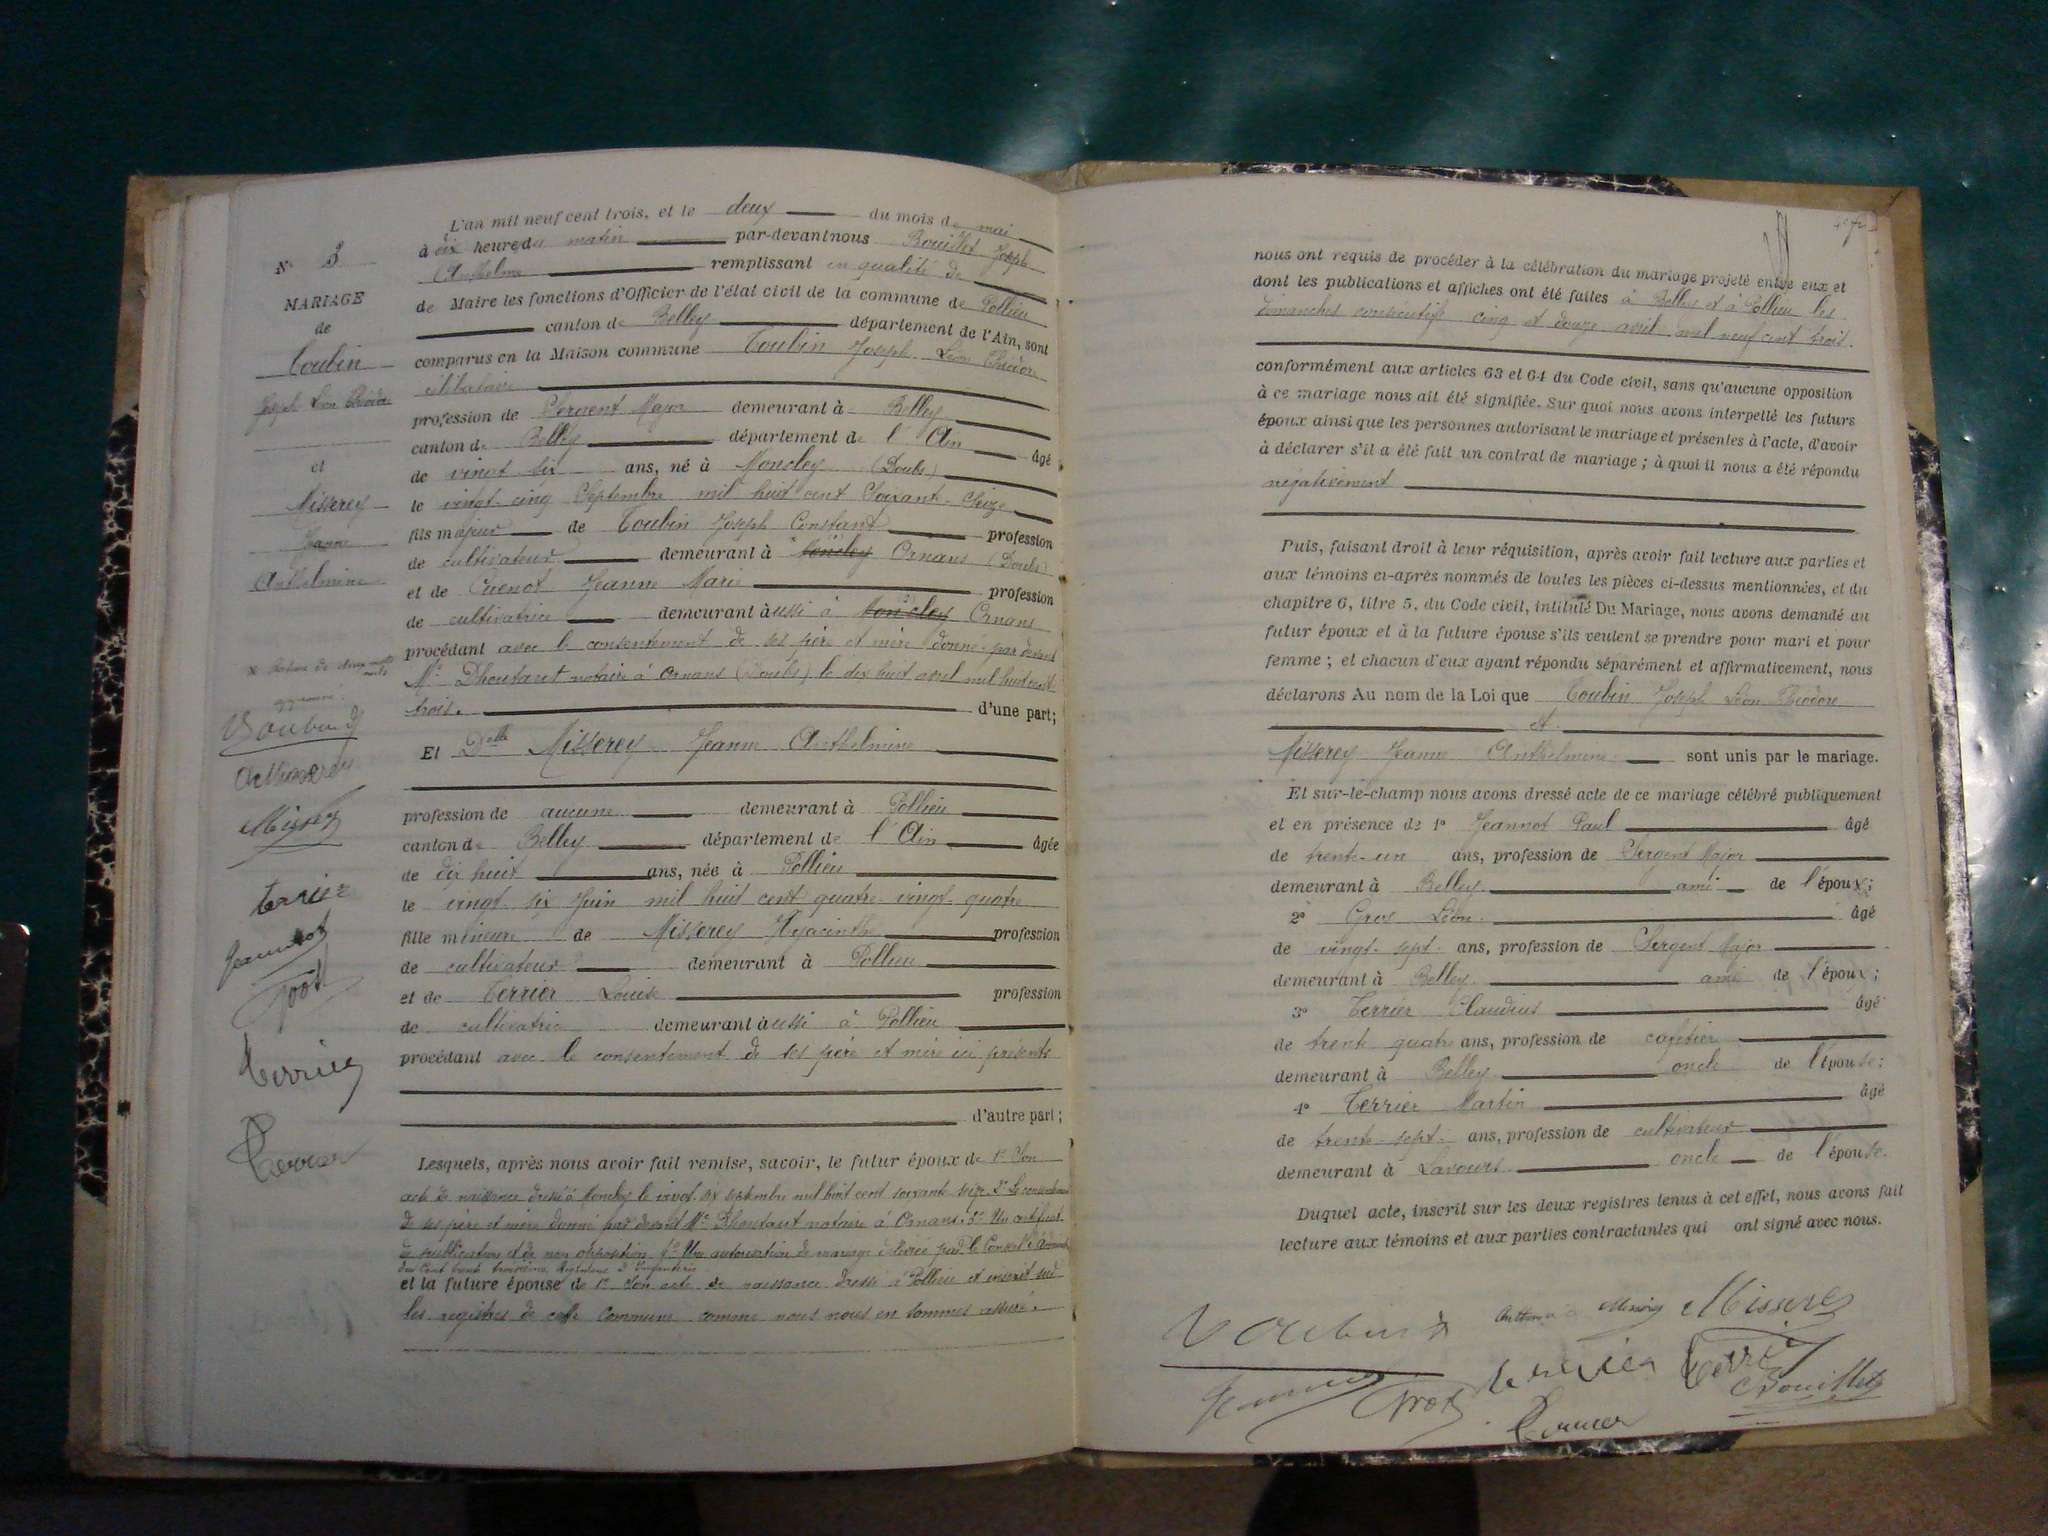 N° 3
MARIAGE
de
Toubin
Joseph Léon Théodore
et
Misserey
Jeanne
Anthelmine
Misserey
Terrier
Jeannot
Terrier
Terrier
L'an mil neuf cent trois, et le deux du mois de mai
à dix heures du matin par-devant nous Bouillet Joseph
Anthelme remplissant en qualité de
de Maire les fonctions d'Officier de l'état civil de la commune de Pollieu
canton de Belley département de l'Ain, sont
comparus en la Maison commune Toubin Joseph Léon Théodore
célibataire
profession de Sergent Major demeurant à Belley
canton de Belley département de l'Ain âgé
de vingt six ans, né à Moncley (Doubs)
le vingt-cinq Septembre mil huit cent Soixante-Seize
fils majeur de Toubin Joseph Constant profession
de cultivateur demeurant à Moncley Ornans (Doubs)
et de Cuenot Jeanne Marie profession
de cultivatrice demeurant aussi à Moncley Ornans
procédant avec le consentement de ses père et mère donné par devant
Me Dhoutaut notaire à Ornans (Doubs) le dix huit avril mil huit cent
trois. d'une part;
Et Delle Misserey Jeanne Anthelmine
profession de aucune demeurant à Pollieu
canton de Belley département de l'Ain âgée
de dix huit ans, née à Pollieu
le vingt-six Juin mil huit cent quatre-vingt-quatre
fille mineure de Misserey Hyacinthe profession
de cultivateur demeurant à Pollieu
et de Terrier Louise profession
de cultivatrice demeurant aussi à Pollieu
procédant avec le consentement de ses père et mère ici présents
d'autre part;
Lesquels, après nous avoir fait remise, savoir, le futur époux de 1° Son
acte de naissance dressé à Moncley le vingt-six septembre mil huit cent soixante seize 2° Le consentement
de ses père et mère donné par devant Me Dhoutaut notaire à Ornans. 3° Un certificat
de publication et de non opposition 4° Une autorisation de mariage délivrée par le Conseil d'Administration
du Cent trente troisième Régiment d'Infanterie
et la future épouse de 1° Son acte de naissance dressé à Pollieu et inscrit sur
les registres de cette Commune comme nous nous en sommes assuré.
nous ont requis de procéder à la célébration du mariage projeté entre eux et
dont les publications et affiches ont été faites à Belley et à Pollieu les
dimanches consécutifs cinq et douze avril mil neuf cent trois.
conformément aux articles 63 et 64 du Code civil, sans qu'aucune opposition
à ce mariage nous ait été signifiée. Sur quoi nous avons interpellé les futurs
époux ainsi que les personnes autorisant le mariage et présentes à l'acte, d'avoir
à déclarer s'il a été fait un contrat de mariage; à quoi il nous a été répondu
négativement
Puis, faisant droit à leur réquisition, après avoir fait lecture aux parties et
aux témoins ci-après nommés de toutes les pièces ci-dessus mentionnées, et du
chapitre 6, titre 5, du Code civil, intitulé Du Mariage, nous avons demandé au
futur époux et à la future épouse s'ils veulent se prendre pour mari et pour
femme; et chacun d'eux ayant répondu séparément et affirmativement, nous
déclarons Au nom de la Loi que Toubin Joseph Léon Théodore
et
Misserey Jeanne Anthelmine sont unis par le mariage.
Et sur-le-champ nous avons dressé acte de ce mariage célébré publiquement
et en présence de 1° Jeannot Paul âgé
de trente-un ans, profession de Sergent Major
demeurant à Belley ami de l'époux;
2° Gros Léon âgé
de vingt-sept ans, profession de Sergent Major
demeurant à Belley ami de l'époux;
3° Terrier Claudius âgé
de trente quatre ans, profession de cafetier
demeurant à Belley oncle de l'épouse;
4° Terrier Martin âgé
de trente-sept ans, profession de cultivateur
demeurant à Lavours oncle de l'épouse.
Duquel acte, inscrit sur les deux registres tenus à cet effet, nous avons fait
lecture aux témoins et aux parties contractantes qui ont signé avec nous.
Misserey
Terrier
Bouillet